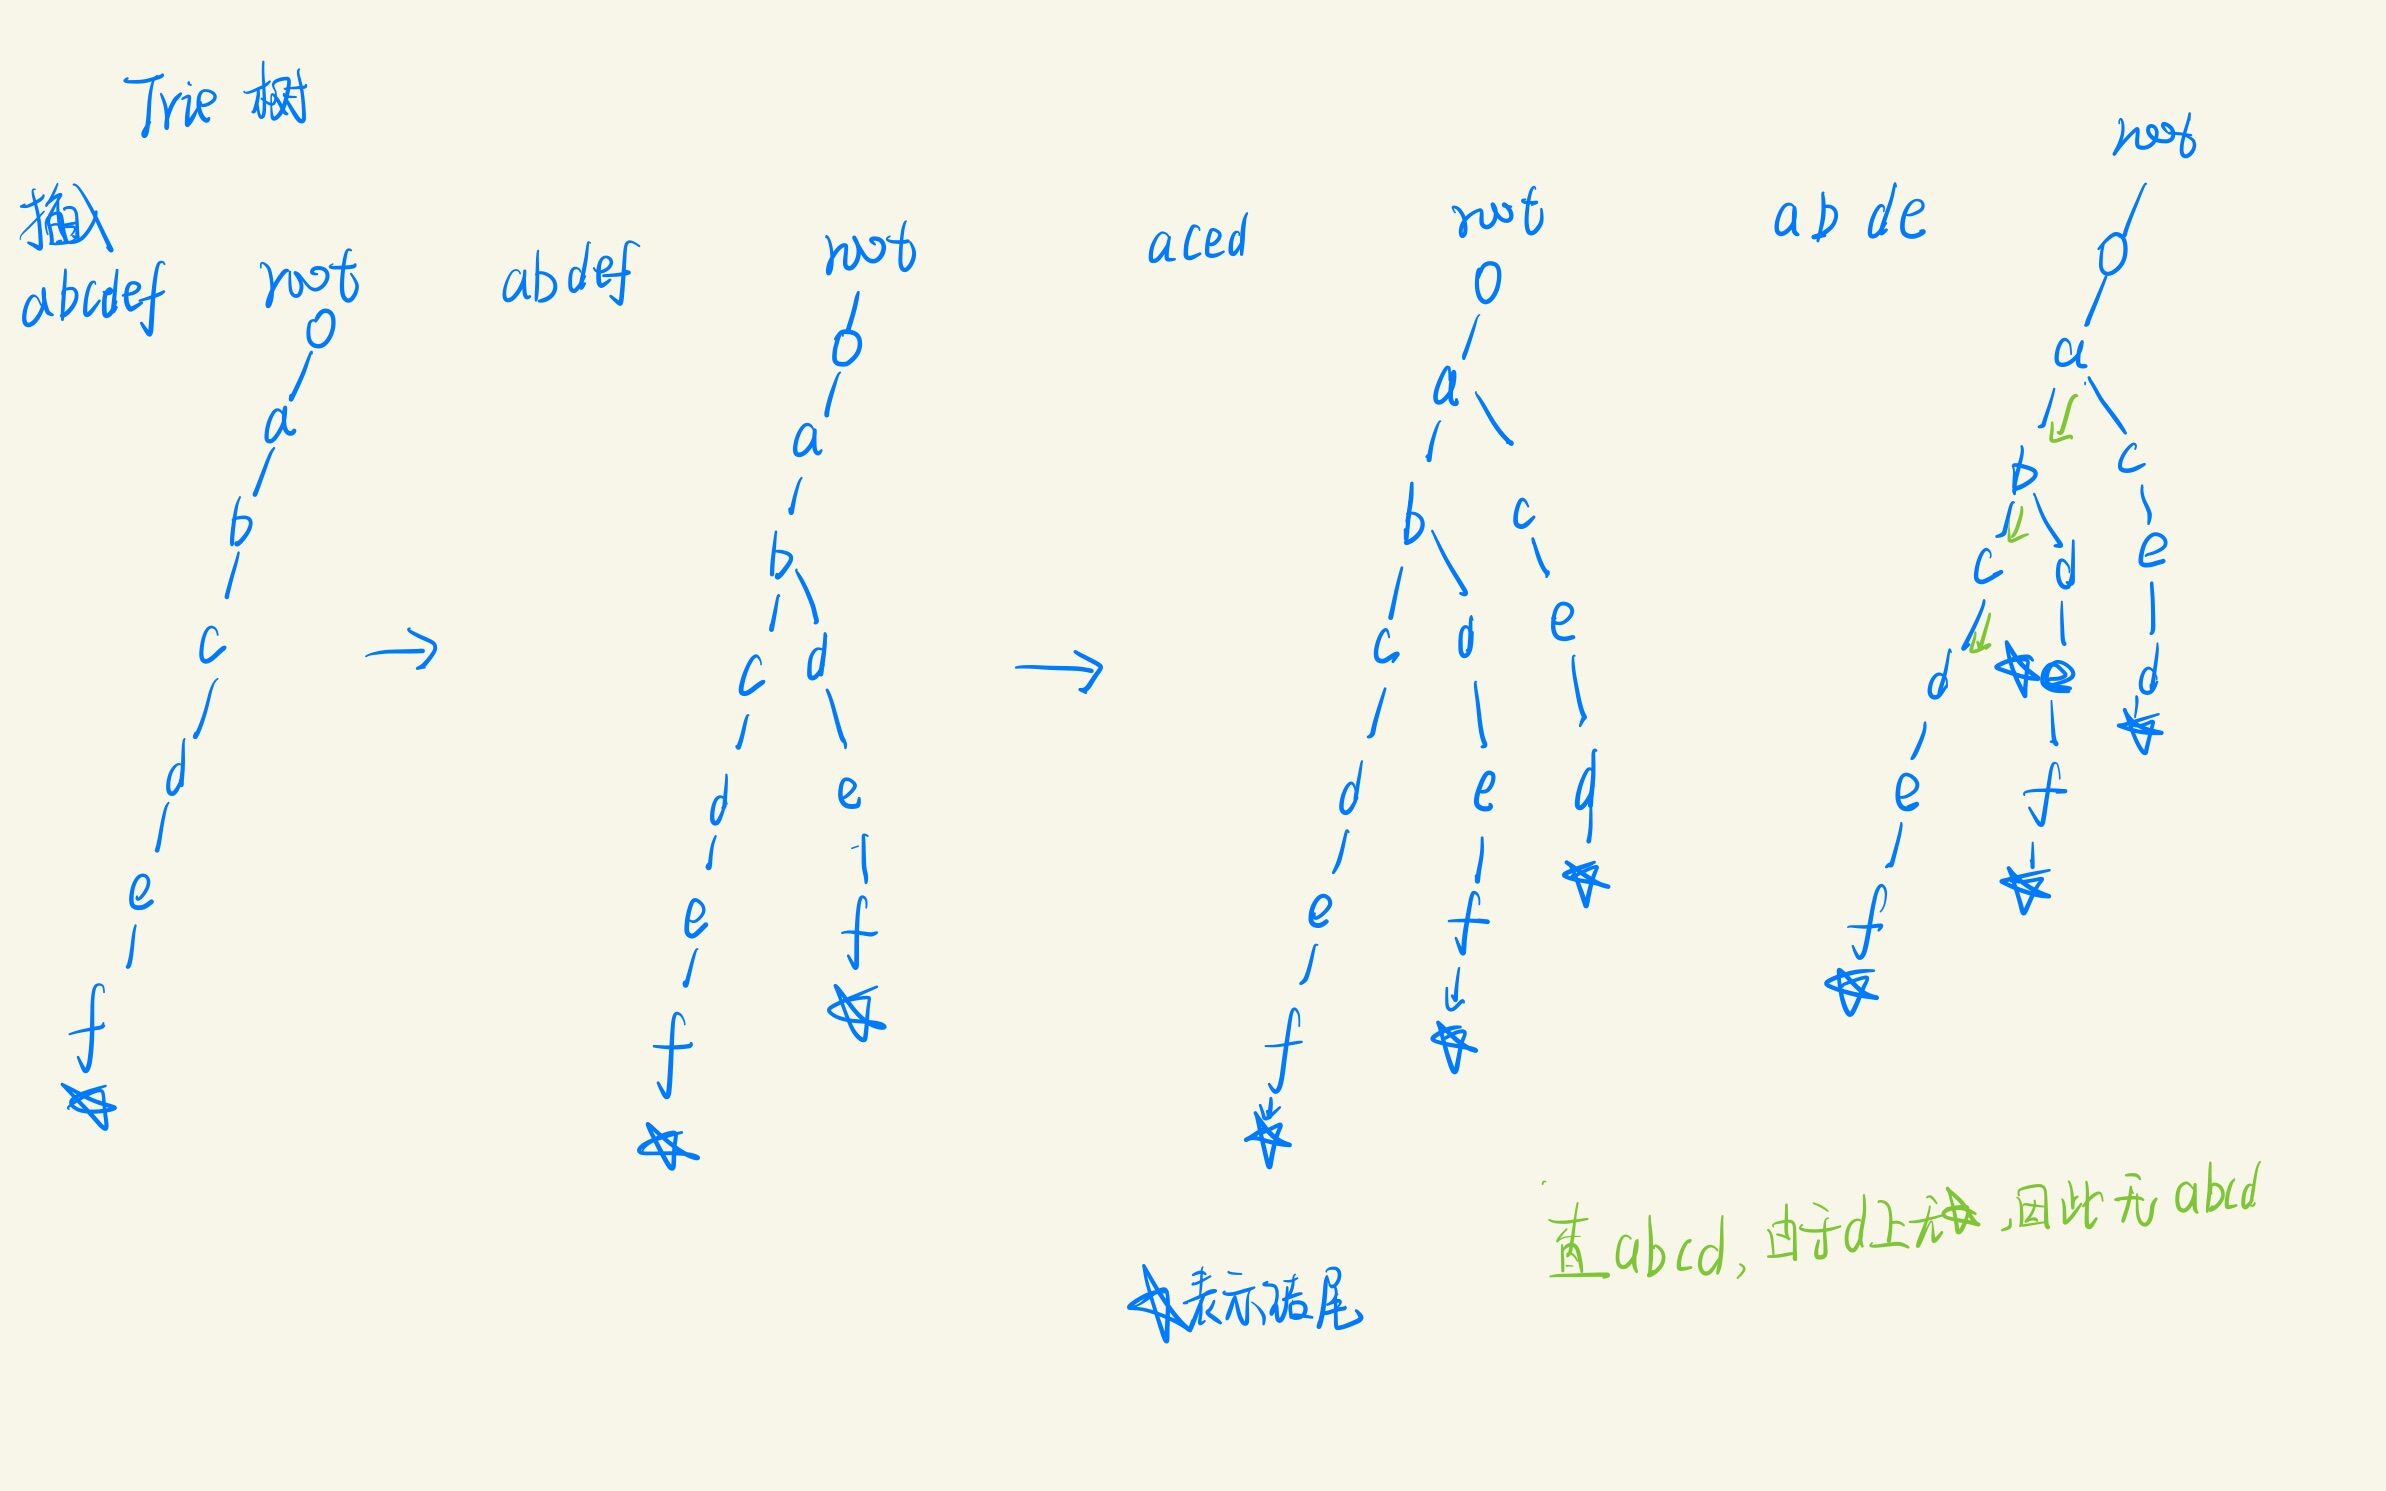 Trie 树
插入
abcdef
root
0
a
b
c
d
e
f
abdef
root
0
a
b
c d
d e
e f
f
aced
root
0
a
b c
c d e
d e d
e f
f
abde
root
0
a
b c
c d e
d e d
e f
f
☆表示结尾
查abcd,由于d上无☆,因此无abcd